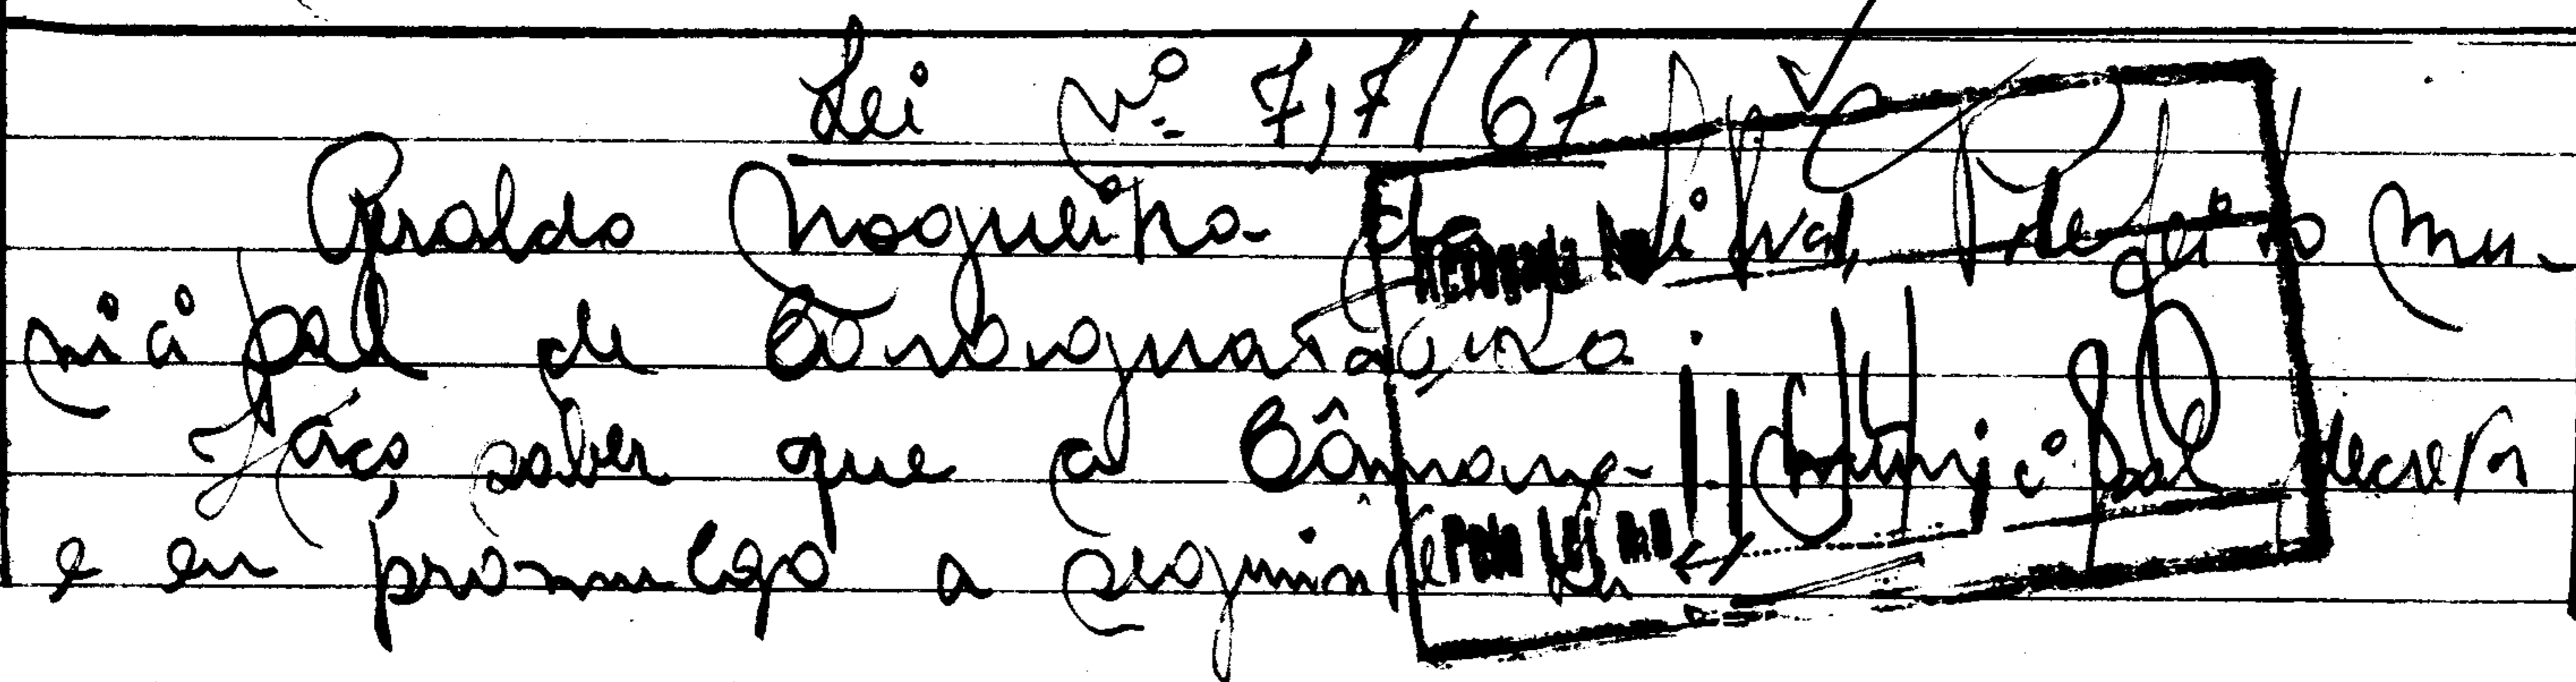 Lei Nº 7,7/67
Geraldo Nogueira da Silva, Prefeito Mu-
nicipal de Caraguatatuba.
Faço, saber que a Câmara Municipal decreta
e eu promulgo a seguinte Lei